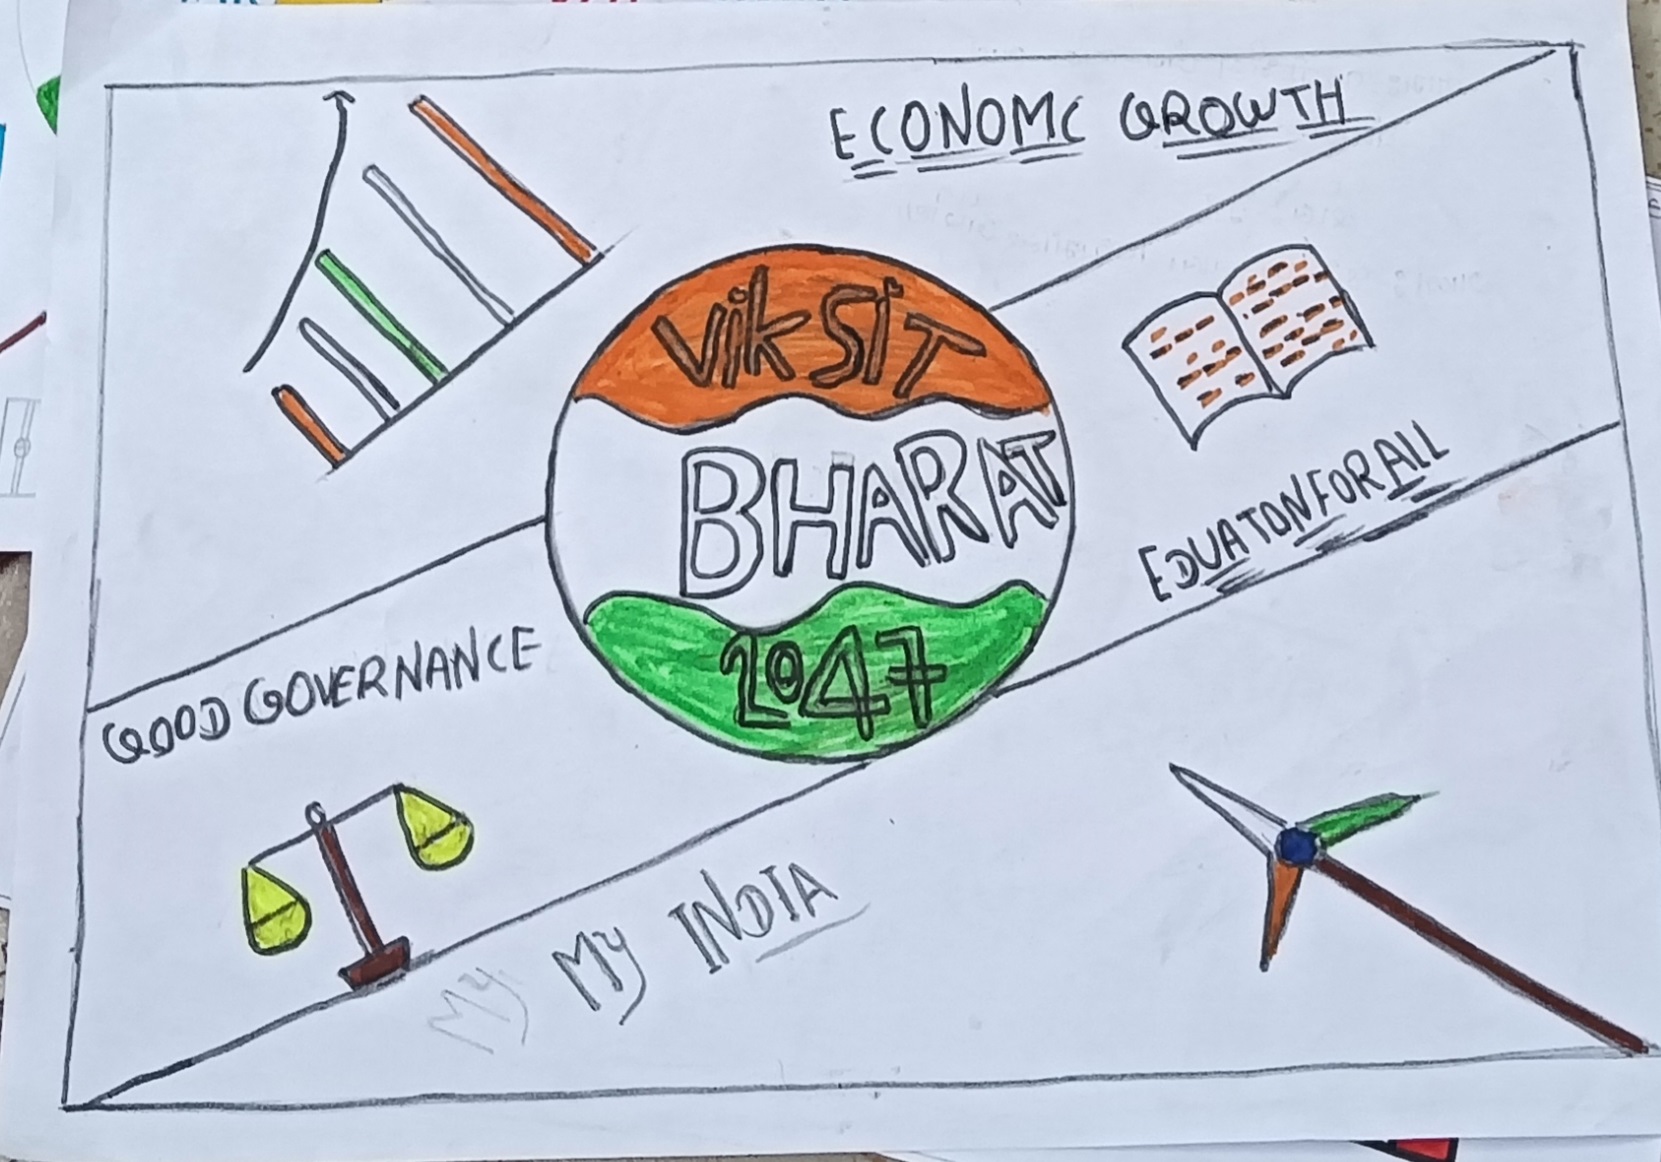 ECONOMC GROWTH
VIKSIT
BHARAT
2047
EDUATON FOR ALL
GOOD GOVERNANCE
My My INDIA